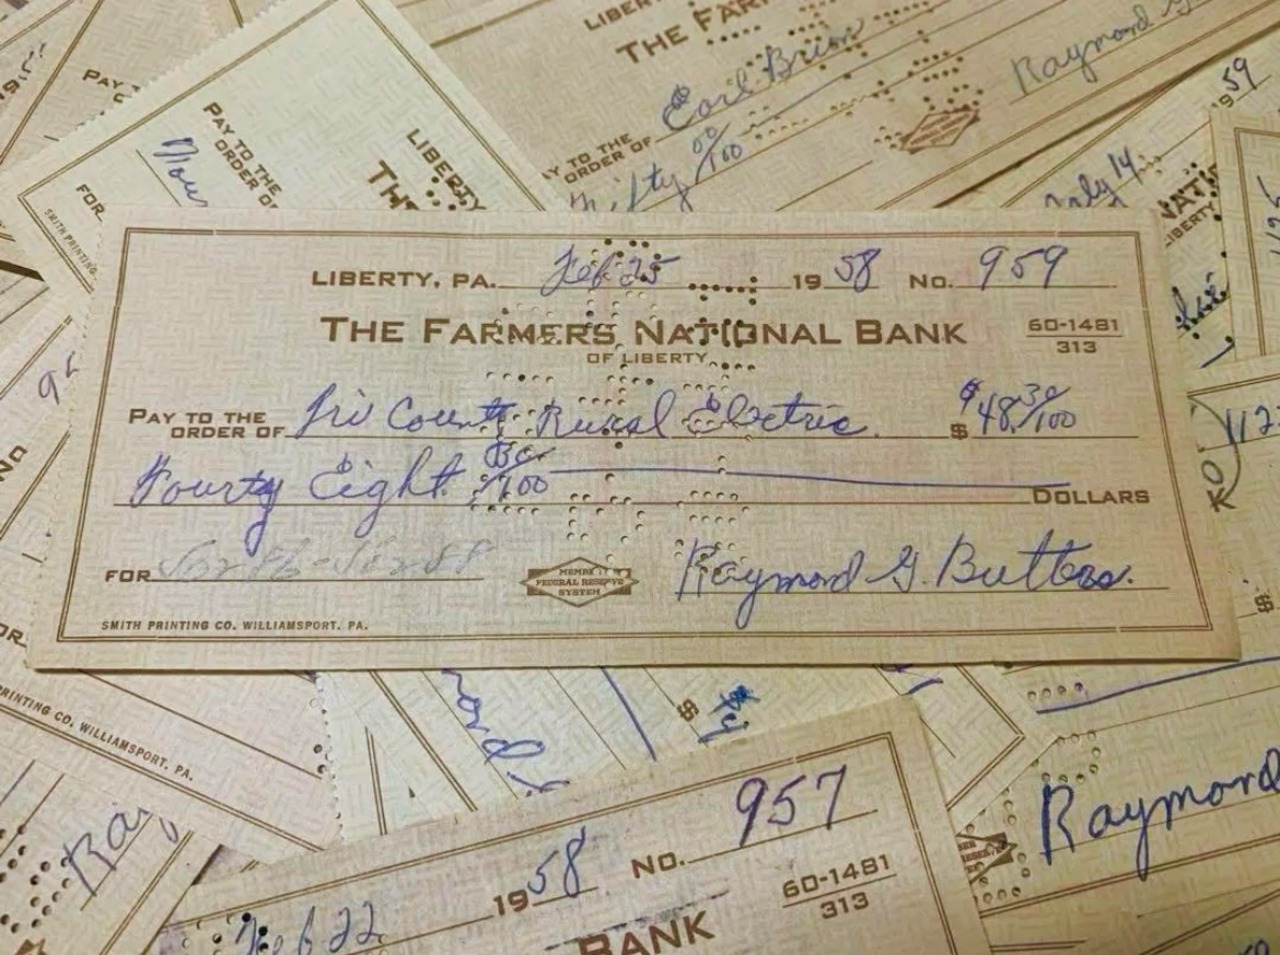 LIBERTY, PA. Feb 25 1958 No. 959
THE FARMERS NATIONAL BANK
OF LIBERTY
60-1481
313
PAY TO THE
ORDER OF Tri County Rural Electric. $ 48.30/100
Fourty Eight 30/100 DOLLARS
FOR
MEMBER
FEDERAL RESERVE
SYSTEM
Raymond G. Butters.
SMITH PRINTING CO. WILLIAMSPORT, PA.
LIBERTY
THE FAR
Earl Brion
Raymond G
PAY TO THE
ORDER OF
00/100
PAY TO THE
ORDER OF
LIBERTY
FOR
SMITH PRINTING
PAY
July 14
1959
NATI
LIBERTY
$
PRINTING CO. WILLIAMSPORT, PA.
Ray
Feb 22 1958 No. 957
60-1481
313
BANK
Raymond